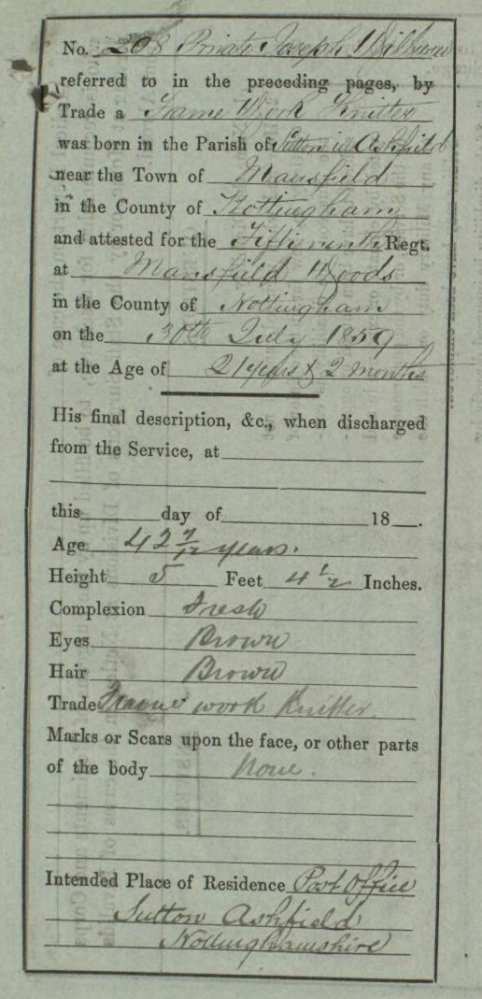 No. 208 Private Joseph
referred to in the preceding pages, by
Trade a Frame Work Knitter
was born in the Parish of Sutton in Ashfield
near the Town of Mansfield
in the County of Nottingham
and attested for the Fifty ninth Regt.
at Mansfield Woods
in the County of Nottingham
on the 30th July 1859
at the Age of 21 years & 2 months
His final description, &c., when discharged
from the Service, at
this day of 18 .
Age 42 7/12 years.
Height 5 Feet 4 1/2 Inches.
Complexion Fresh
Eyes Brown
Hair Brown
Trade Frame work Knitter.
Marks or Scars upon the face, or other parts
of the body None.
Intended Place of Residence Post Office
Sutton Ashfield
Nottinghamshire